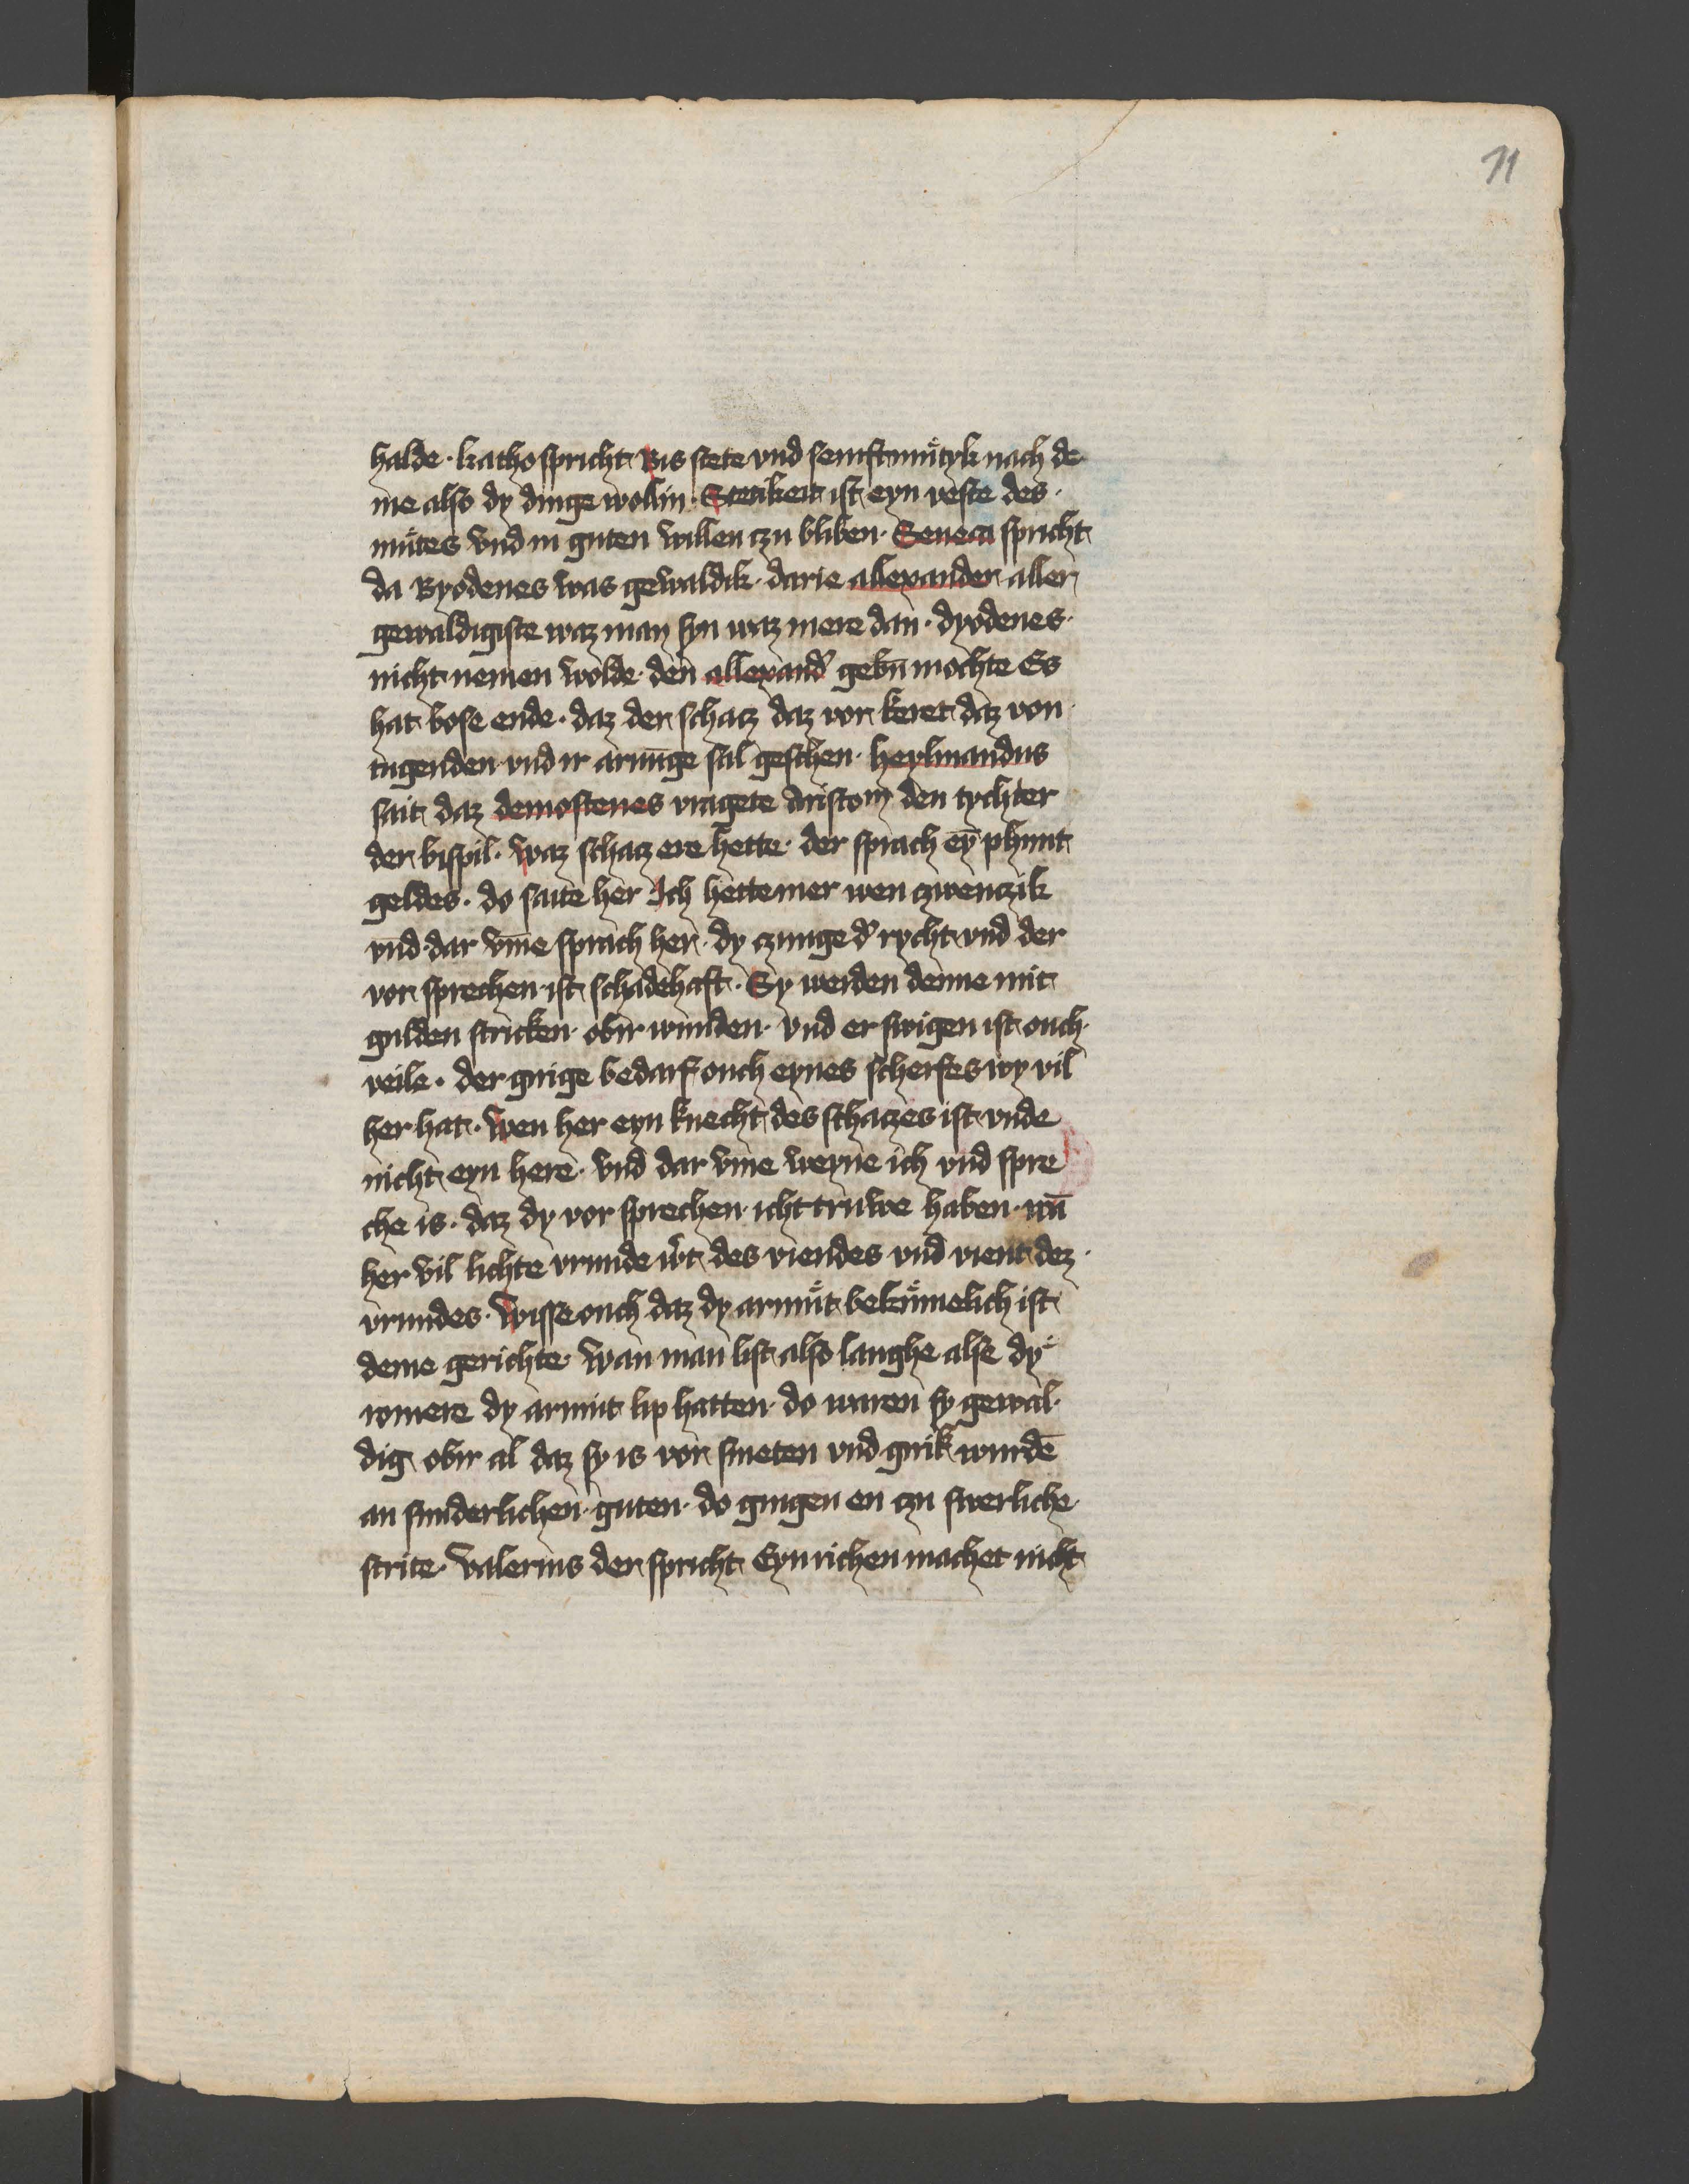 71
halde · katho spricht Bis stete vnd semftmuͤtyk nach de
me also dy dinge wollin · Stetikeit ist eyn veste des ·
muͤtes vnd in guten willen czu bliben · Seneca spricht
da Byodenes was gewaldik · darie allexander aller
gewaldigiste waz man syn waz mere dan · dyodenes ·
nicht nemen wolde · den allexand̕ gebn̄ mochte Es
hat bose ende · daz der schacz daz vor keret daz von
tugenden vnd ir arnūge sal geschen · heylmandus
sait daz demostenes vragete Aristom den tychter
der bispil · waz schacz ere hette · der sprach eȳ phunt
geldes · do saite her Ich hette mer wen czwenczik
vnd dar vm̄e sprach her · dy czunge d̕ rycht vnd der
vor sprechen ist schadehaft · Sy werden denne mit
gulden stricken · obir wunden · vnd er swigen ist ouch ·
veile · der girige bedarf ouch eynes scherfes wy vil
her hat · wen her eyn knecht des schaczes ist vnde
nicht eyn here · vnd dar vm̄e weyne ich vnd spre
che is · daz dy vor sprechen icht truwe haben · wā
her vil lichte vrunde w̕t des viendes vnd vient dez ·
vrundes · wisse ouch daz dy armuͤt bekuͤmelich ist
deme gerichte · wan man list also langhe alse dy
romere dy armut lip hatten · do waren sy gewal ·
dig obir al daz sy is vor smeten vnd girik wurdē
an sunderlichen · guten · do gingen en czu swerliche
strite · valerius der spricht Eyn richen machet nicht